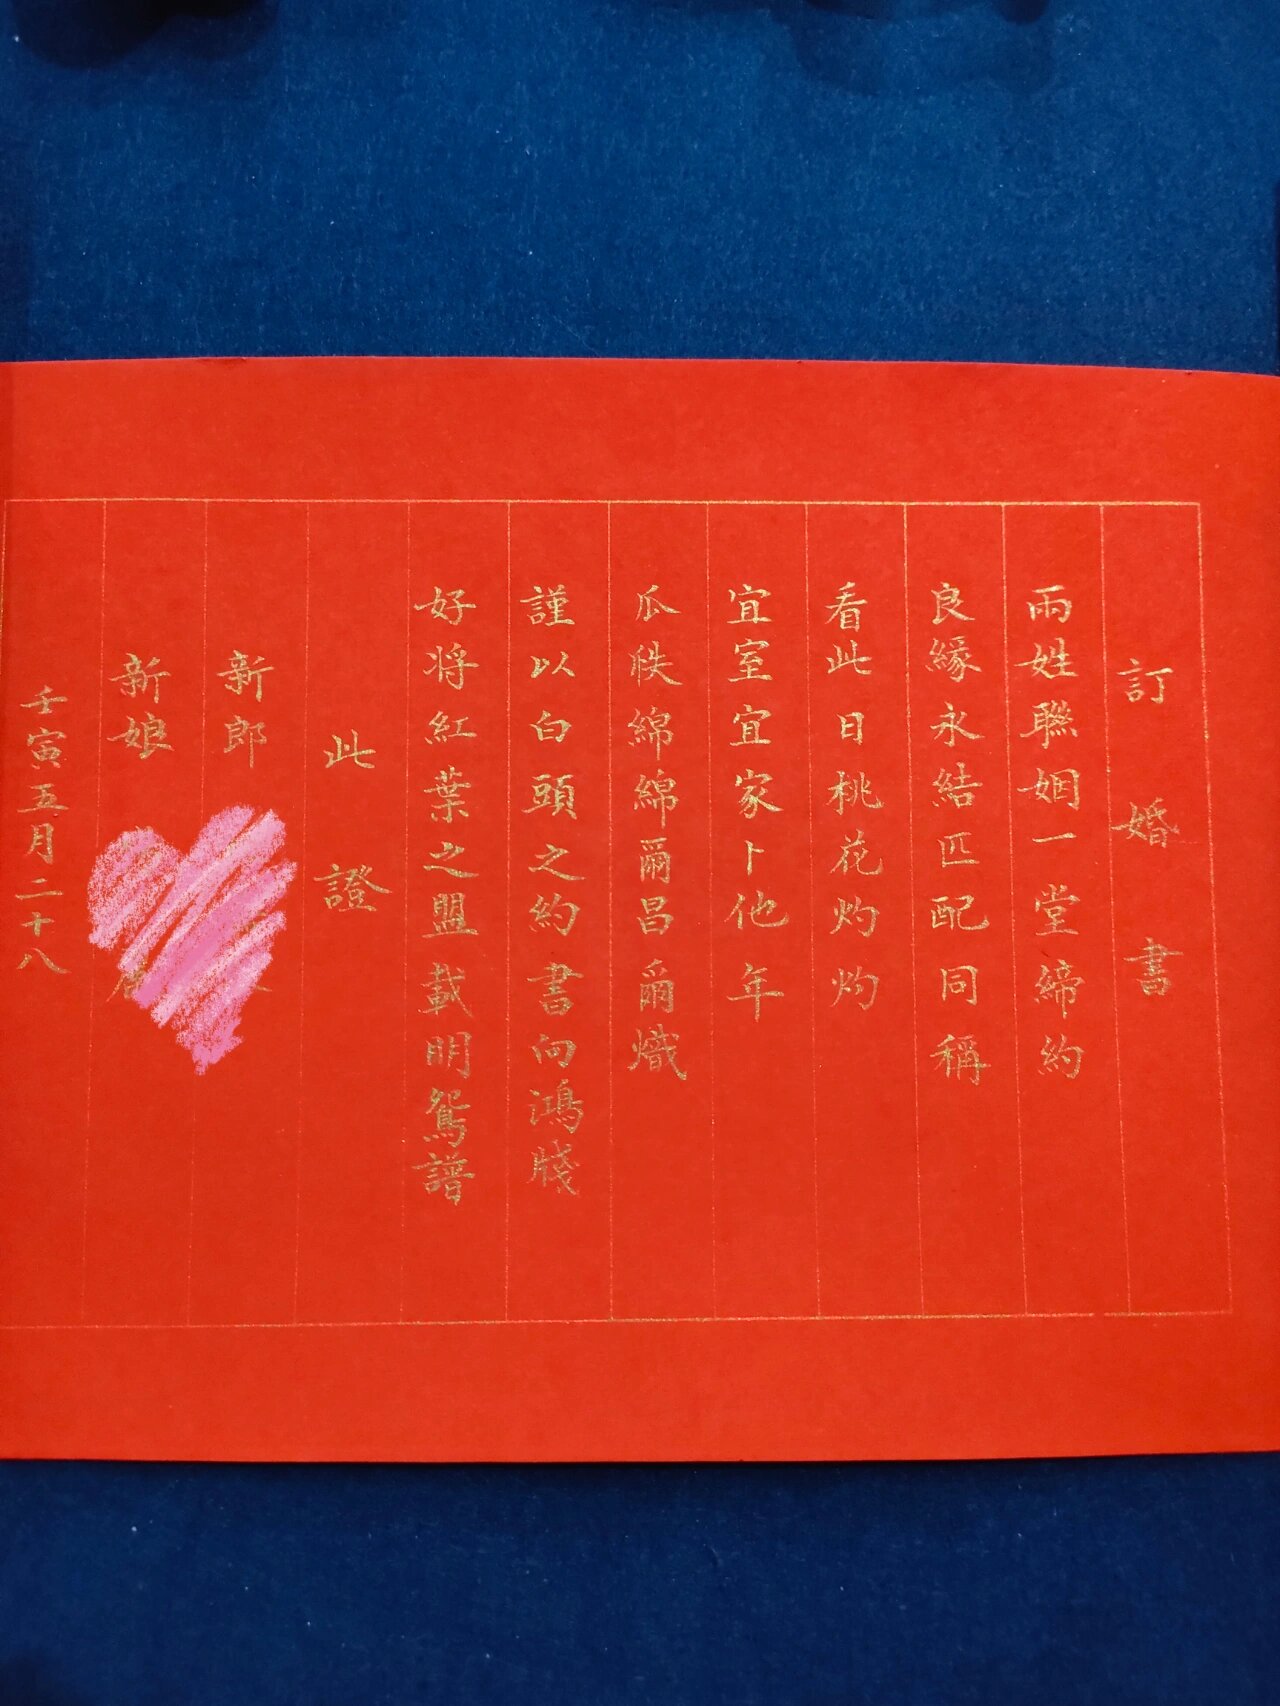 訂婚書
兩姓聯姻一堂締約
良緣永結匹配同稱
看此日桃花灼灼
宜室宜家卜他年
瓜瓞綿綿爾昌爾熾
謹以白頭之約書向鴻牋
好将紅葉之盟載明鴛譜
此證
新郎
新娘
壬寅五月二十八